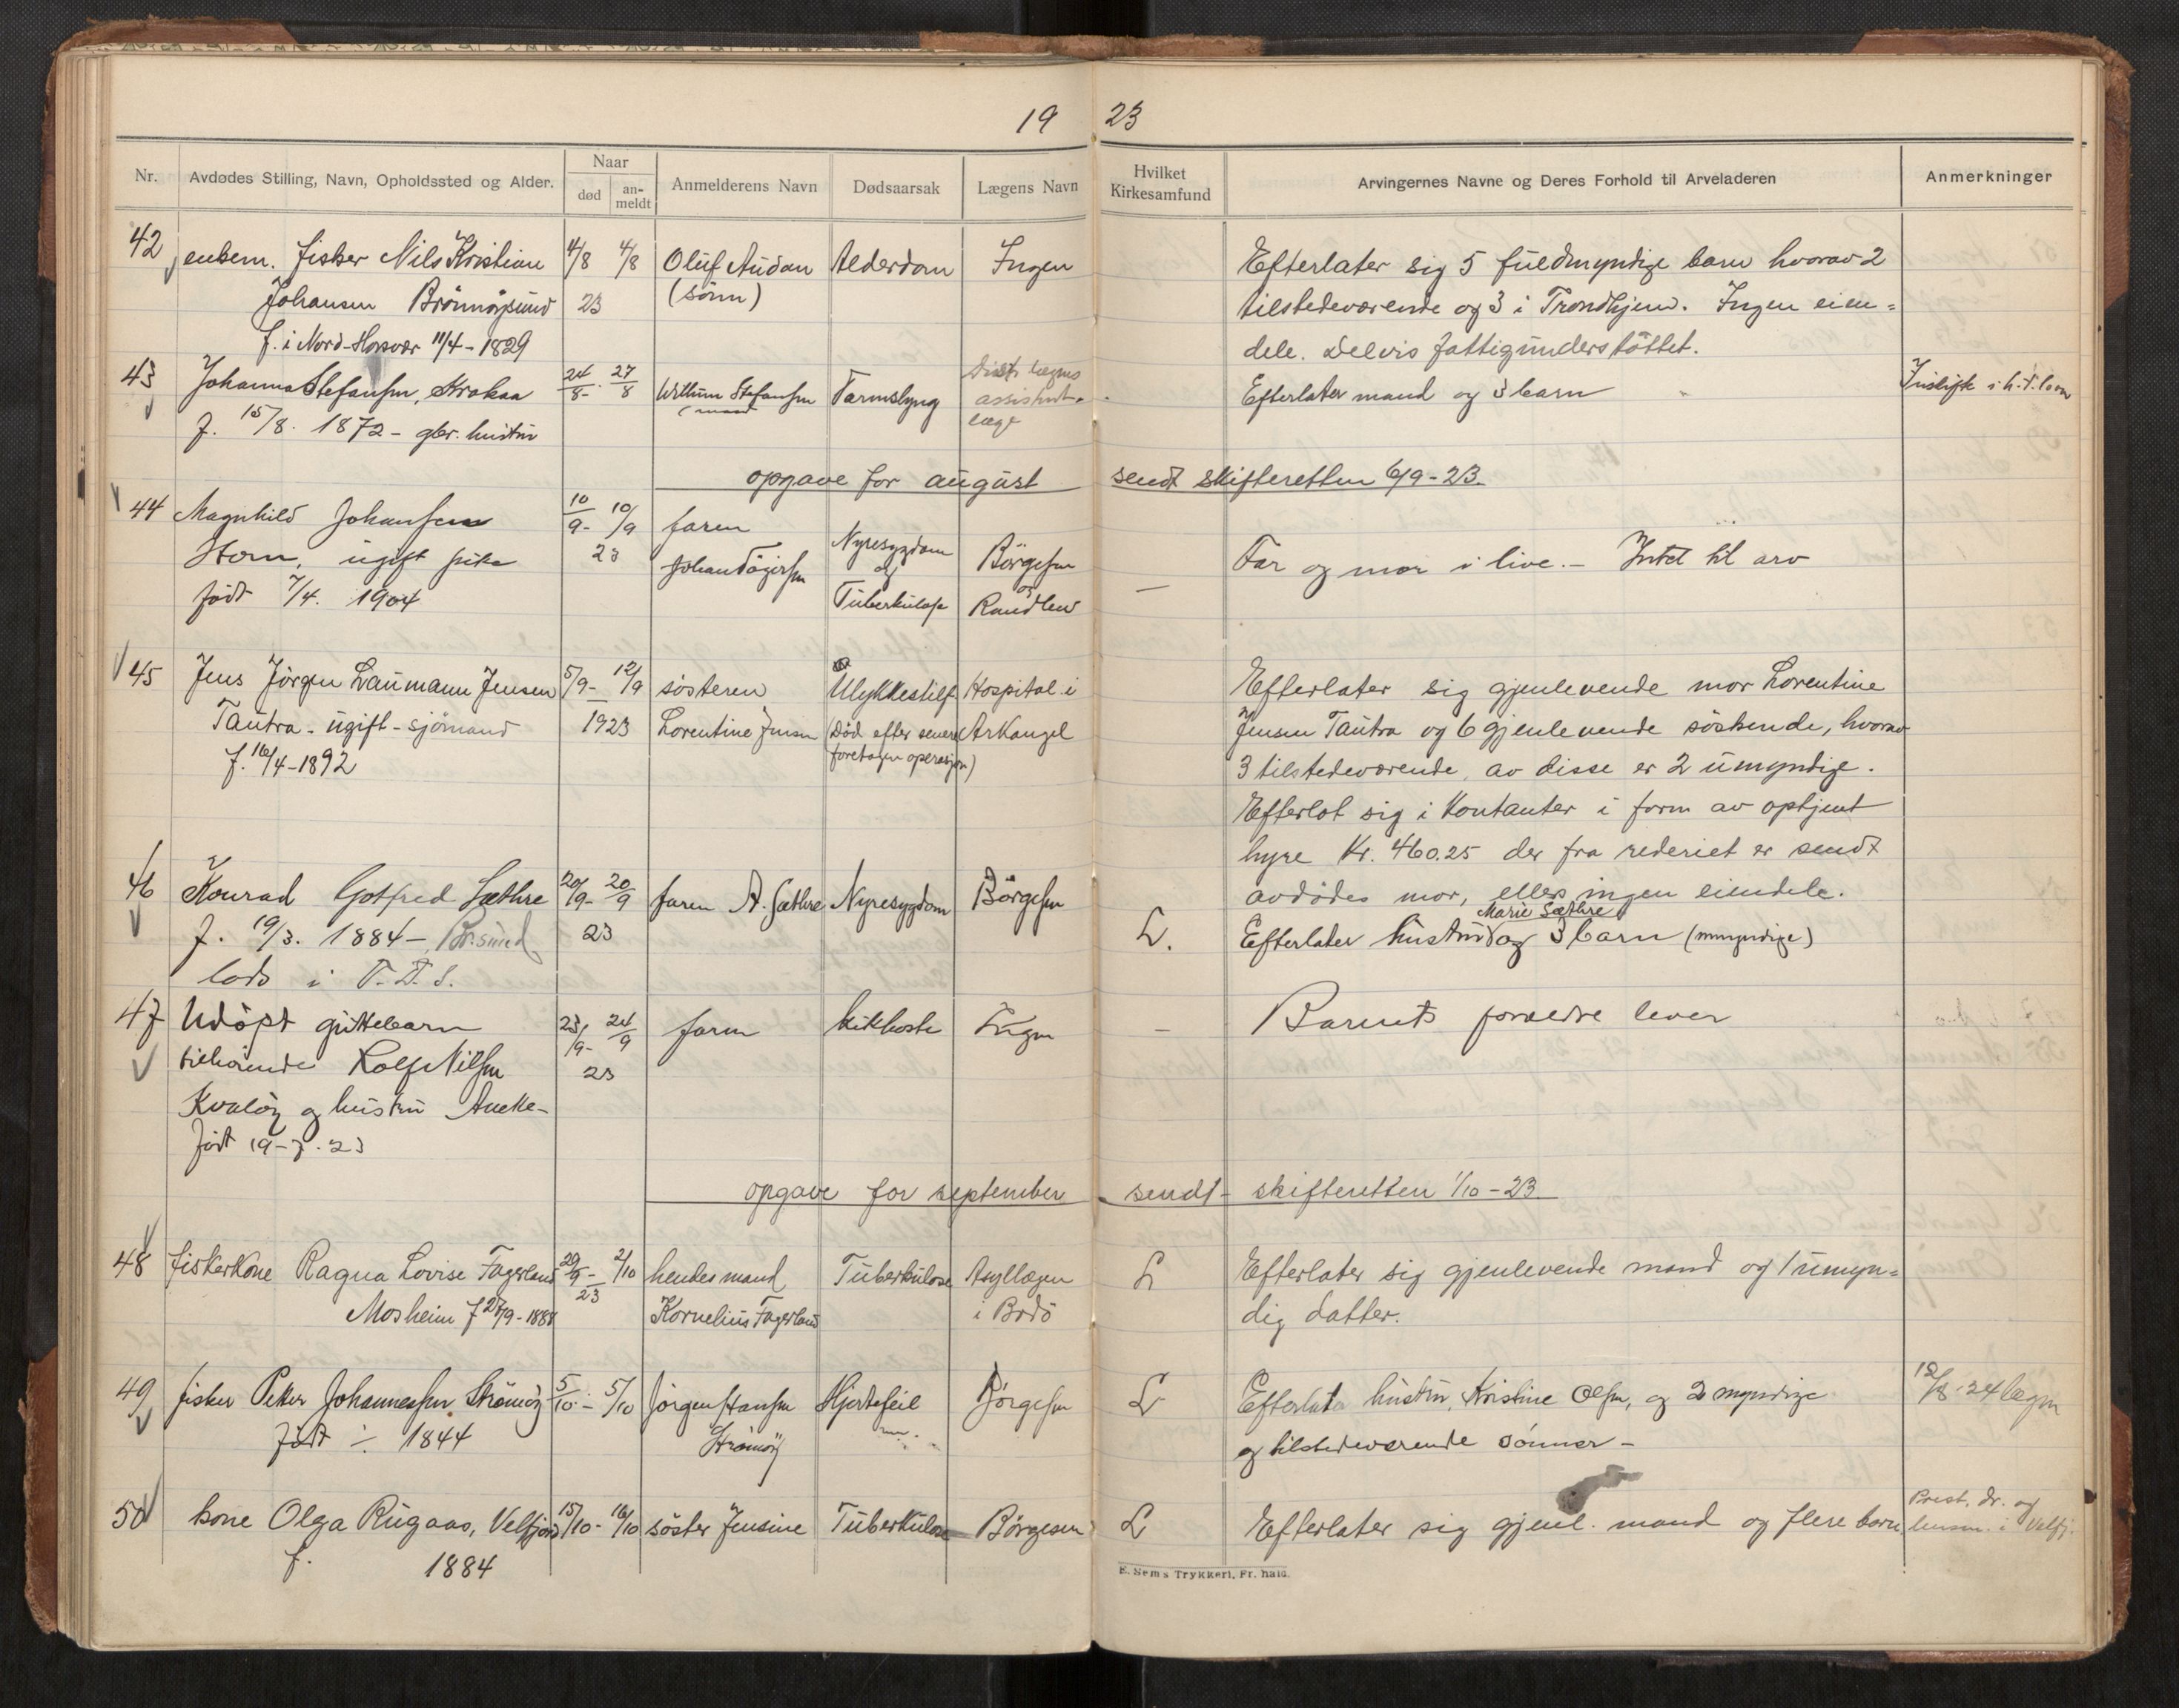 19 23
Nr. Avdødes Stilling, Navn, Opholdssted og Alder. Naar død an-meldt Anmelderens Navn Dødsaarsak Lægens Navn Hvilket Kirkesamfund Arvingernes Navne og Deres Forhold til Arveladeren Anmerkninger
42 enkem. fisker Nils Kristian 4/8 4/8 Oluf Audan Alderdom Ingen Efterlater sig 5 fuldmyndige barn hvorav 2
Johansen Brönnöysund 23 (sönn) tilstedeværende og 3 i Trondhjem. Ingen eien=
f. i Nord-Horsvær 11/4-1829 dele. Delvis fattigunderstöttet.
43 Johanna Stefansen, Strakaa 24/8- 27/8 Willum Stefansen Tarmslyng Distr. lægens Efterlater mand og 3 barn
(mand assistent-
f. 15/8. 1872 - gbr. hustru læge
opgave for august sendt skifteretten 6/9-23.
44 Magnhild Johansen 10/9- 10/9 faren Nyresygdom Börgesen
Horn, ugift pike 23 Johan og og — Far og mor i live. - Intet til arv
födt 7/4. 1904 Tuberkulose
45 Jens Jörgen Laumann Jensen 5/9- 12/9 søsteren Ulykkestilf. Hospital i Efterlater sig gjenlevende mor Lorentine
Tautra - ugift - sjömand 1923 Lorentine Jensen (Död efter senere Arkangel Jensen Tautra og 6 gjenlevende söskende, hvorav
f. 16/4-1892 foretagen operasjon) 3 tilstedeværende, av disse er 2 umyndige.
Efterlot sig i Kontanter i form av optjent
hyre Kr. 460.25 der fra rederiet er sendt
avdödes mor, ellers ingen eiendele.
46 Konrad Gotfred Sæthre 20/9- 20/9 faren A. Sæthre Nyresygdom Börgesen L. Efterlater hustru Marie Sæthre og 3 barn (umyndige)
f. 19/3. 1884 - Br.sund 23
lods i
47 Udöpt guttebarn 23/9- 24/9 faren kikhoste Ingen — Barnets forældre lever
tilhörende Rolf Nilsen 23
Kvalöy og hustru
födt 19-7.23
opgave for september sendt skifteretten 1/10-23
48 fiskerkone Ragna Lovise Fagerland 29/9- 2/10 hendes mand Tuberkulose Asyllægen L Efterlater sig gjenlevende mand og 1 umyn=
Mosheim f 27/9-1888 23 Kornelius Fagerland i Bodö dig datter.
49 fisker Peter Johannessen Strömöy 5/10- 5/10 Jörgen Hansen Hjertefeil Börgesen L Efterlate hustru, Kristine Olsen, og 2 myndige 12/8-24
födt ÷ 1844 Strömöy og tilstedeværende sönner -
50 kone Olga Rugaas, Velfjord 15/10- 16/10 söster Jensine Tuberkulose Börgesen L Efterlater sig gjenl. mand og flere barn Prest. dr. og
f. 1884 lensm. i Velfj.
E. Sem's Trykkeri, Fr.hald.